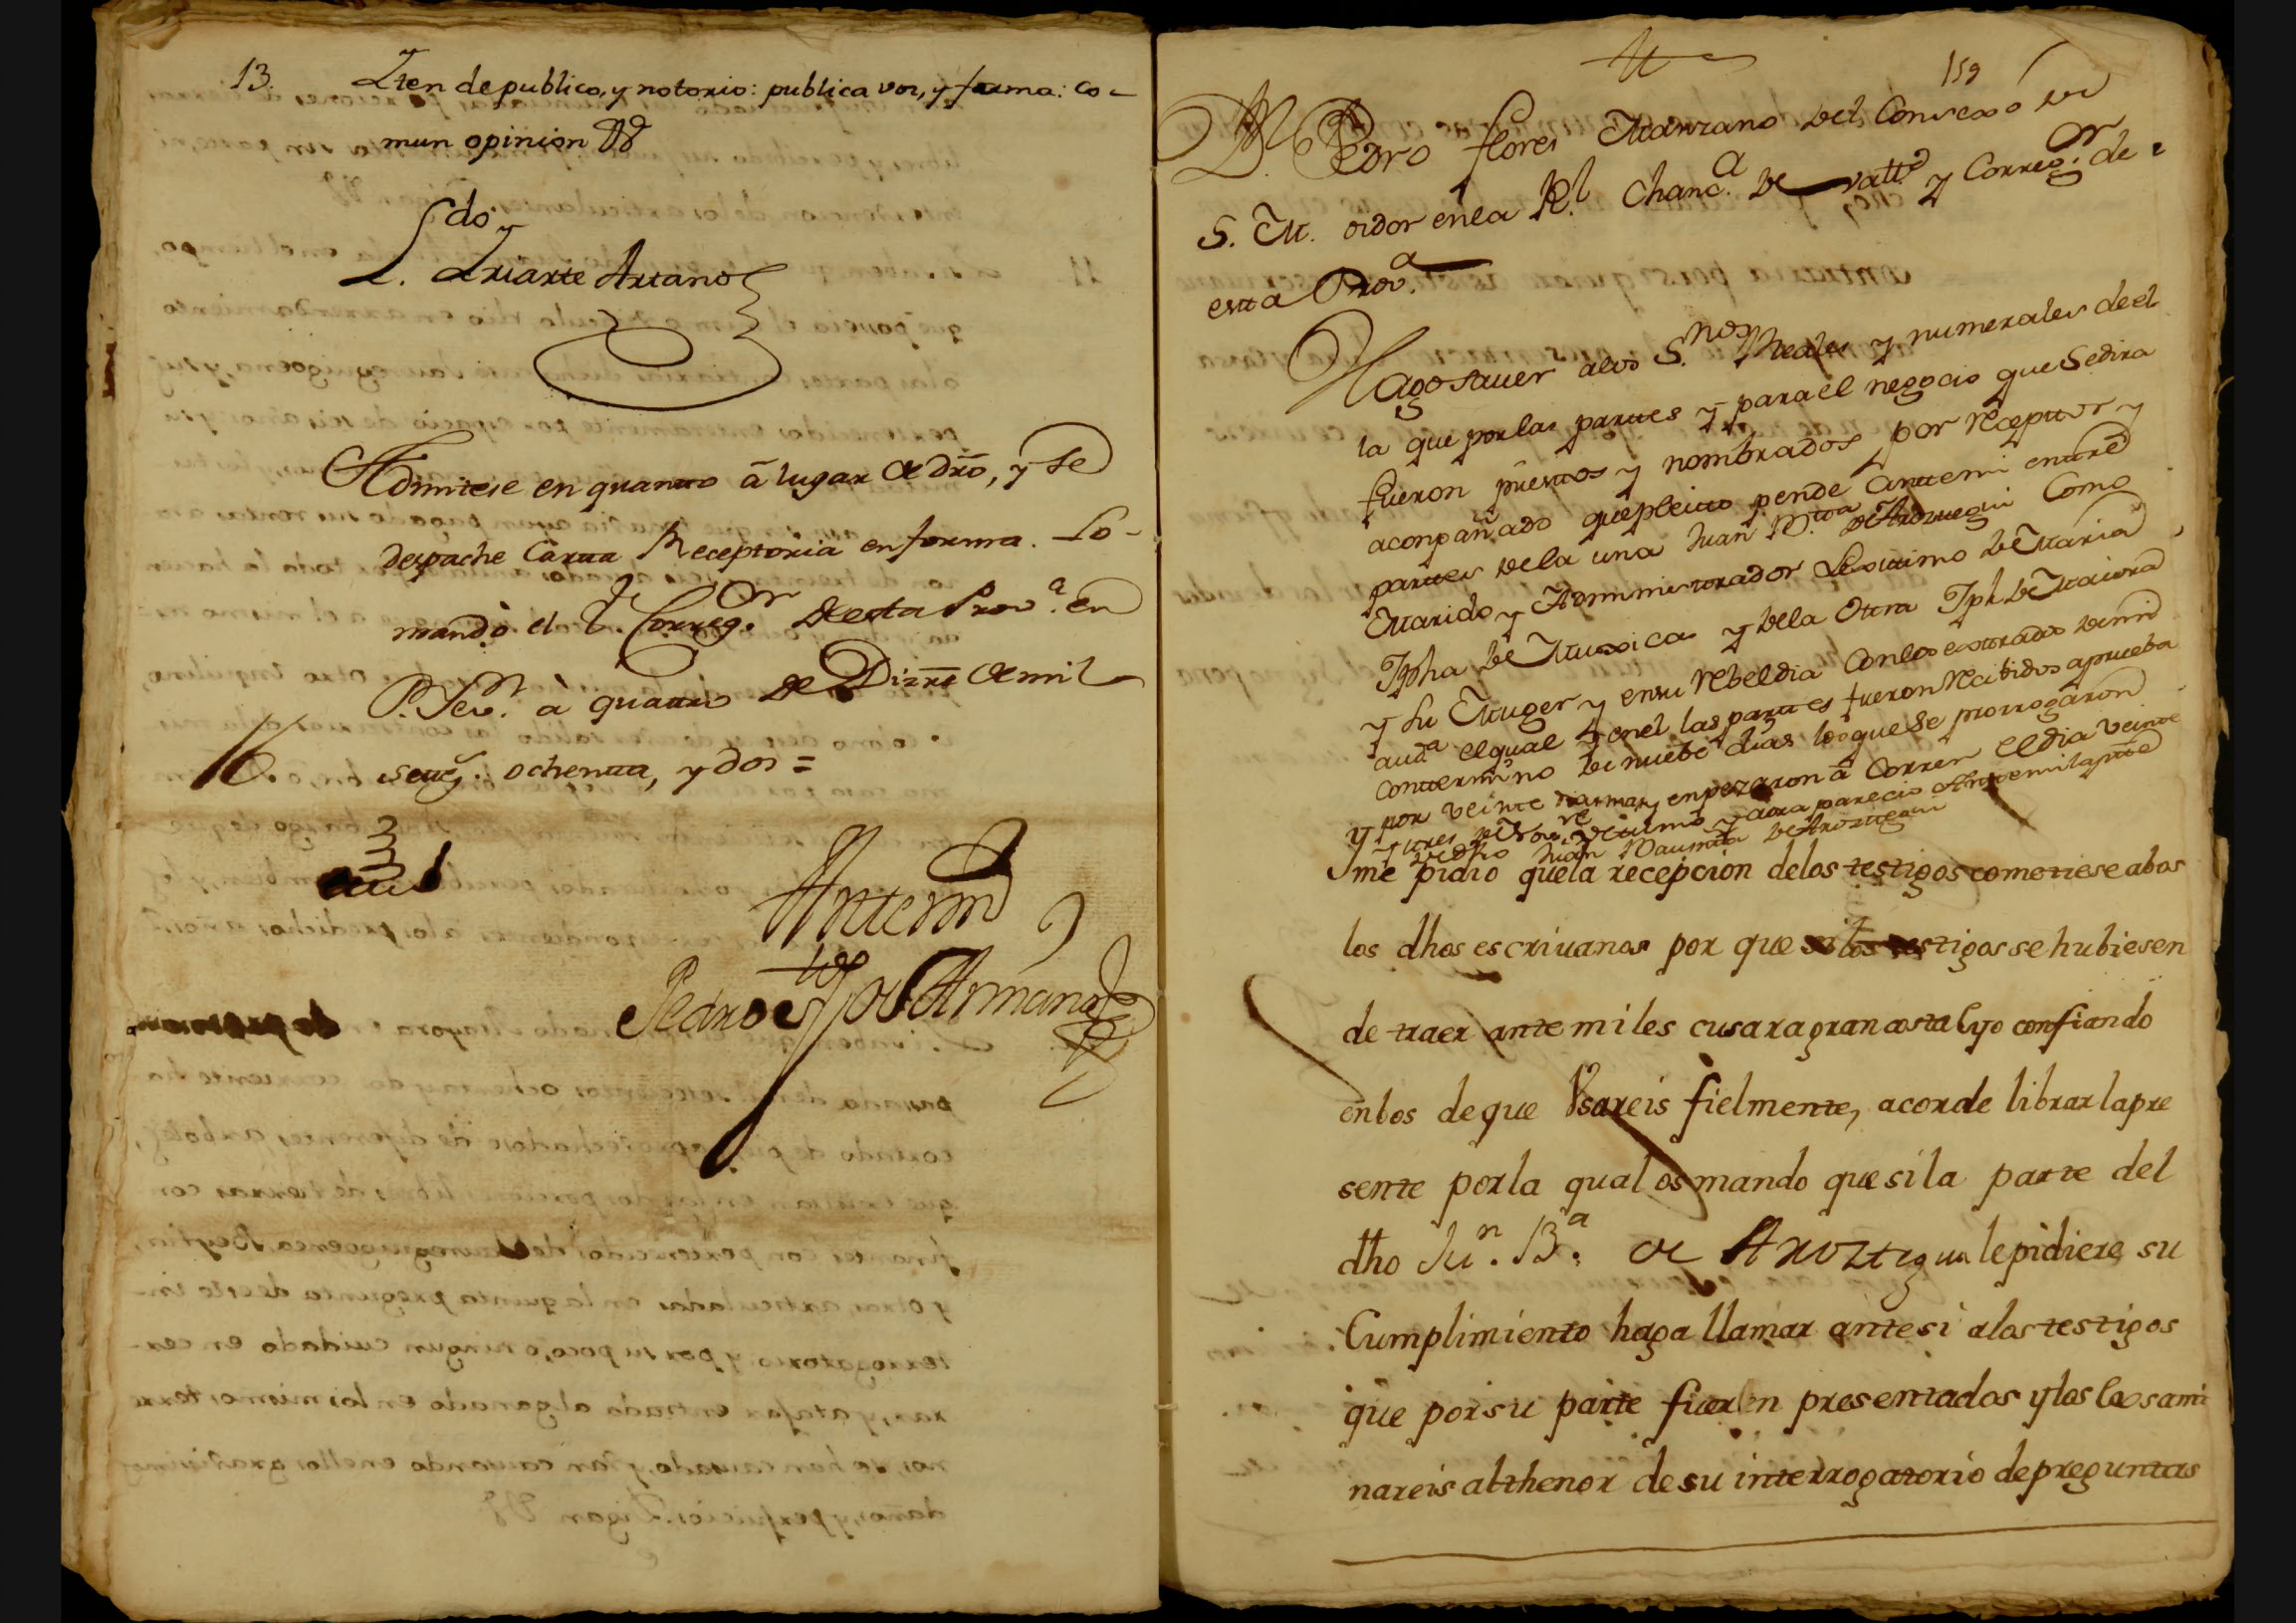 13. Iten de publico, y notorio: publica voz, y fama: co-
mun opinion &ª
L.do
L. Iriarte Artano
Admitese en quanto â lugar de dro, y se
despache Carta Receptoria en forma. Lo
mandò el S.r Correg.or de esta Prov.a en
à quatro de Diz.re de mil
setec.s ochenta, y dos =
Antemi
Pedro
159
D.n Pedro flores Manzano del Consexo de
S. M. oidor en la R.l Chanc.a de Vall.d y Correg.or de
esta Prov.a
Hago sauer a los S.nos Reales y numerales de el
la que por las partes y para el negocio que se dira
fueron puestos y nombrados por receptor y
aconpañado que pleito pende antemi entre
partes de la una Juan B.tta de Aroztegui Como
Marido y Administrador Lexitimo de Maria
Jpha de Muxica y de la Otra Jph de Maiora
y su Muger y en su rebeldia con los estrados de mi
aud.a el qual y en el las partes fueron recibidos a prueba
con termino de nuebe dias los que se prorrogaron
y por veinte dias mas y enpezaron â correr el dia veinte
y tres de Nov.re ultimo y aora parecio Ante mi la parte
de dho Juan Bauptta de Aroztegui
y me pidio que la recepcion de los testigos cometiese a bos
los dhos escriuanos por que si los testigos se hubiesen
de traer ante mi les cusara gran costa E yo confiando
en bos de que Usareis fielmente, acorde librar la pre
sente por la qual os mando que si la parte del
dho Ju.n B.a de Aroztegui le pidiere su
Cumplimiento haga llamar ante si a los testigos
que por su parte fueren presentados y los Exsami
nareis al thenor de su interrogatorio de preguntas